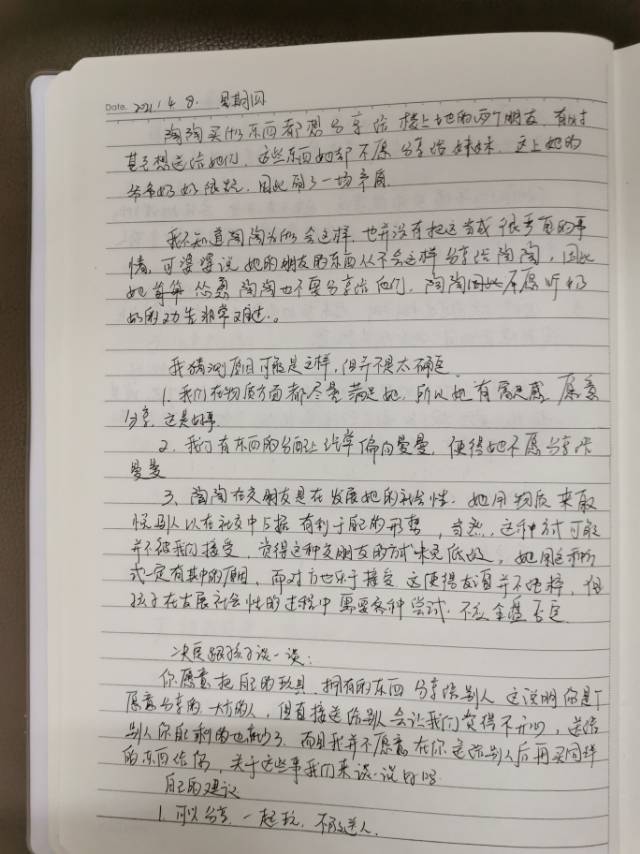 Date. 2021.4.8. 星期四
陶陶买的东西都想分享给楼上她的两个朋友,有时
甚至想送给她们,这些东西她却不愿分享给妹妹,这让她的
爷爷奶奶很,因此闹了一场矛盾
我不知道陶陶为何会这样,也并没有把这当成很严重的事
情,可婆婆说她的朋友的东西从不会这样分享给陶陶,因此
她怂恿陶陶也不要分享给他们,陶陶因此不愿听奶
奶的劝告非常。
我猜测原因可能是这样,但并不是太确定
1. 我们在物质方面都尽量满足她,所以她有满足感,愿意
分享,这是好事
2. 我们有东西的分配让偏向曼曼,使得她不愿分享给
曼曼
3. 陶陶在交朋友是在发展她的社会性,她用物质来取
悦别人以在社交中占据有利于自己的形势,当然,这种方式可能
并不被我们接受,觉得这种交朋友的方式味低级,她用这种方
式一定有其中的原因,而对方也乐于接受,这使得友谊并不纯粹,但
孩子在发展社会性的过程中需要各种尝试,不应全盘否定
决定跟孩子谈一谈:
你愿意把自己的玩具、拥有的东西分享给别人,这说明你是个
愿意分享的大方的人,但直接送给别人会让我们觉得不开心,送给
别人你能剩的也减少了,而且我并不愿意在你送给别人后再买同样
的东西给你,关于这些事我们来谈一谈好吗
自己的建议
1. 可以分享,一起玩,不送人.